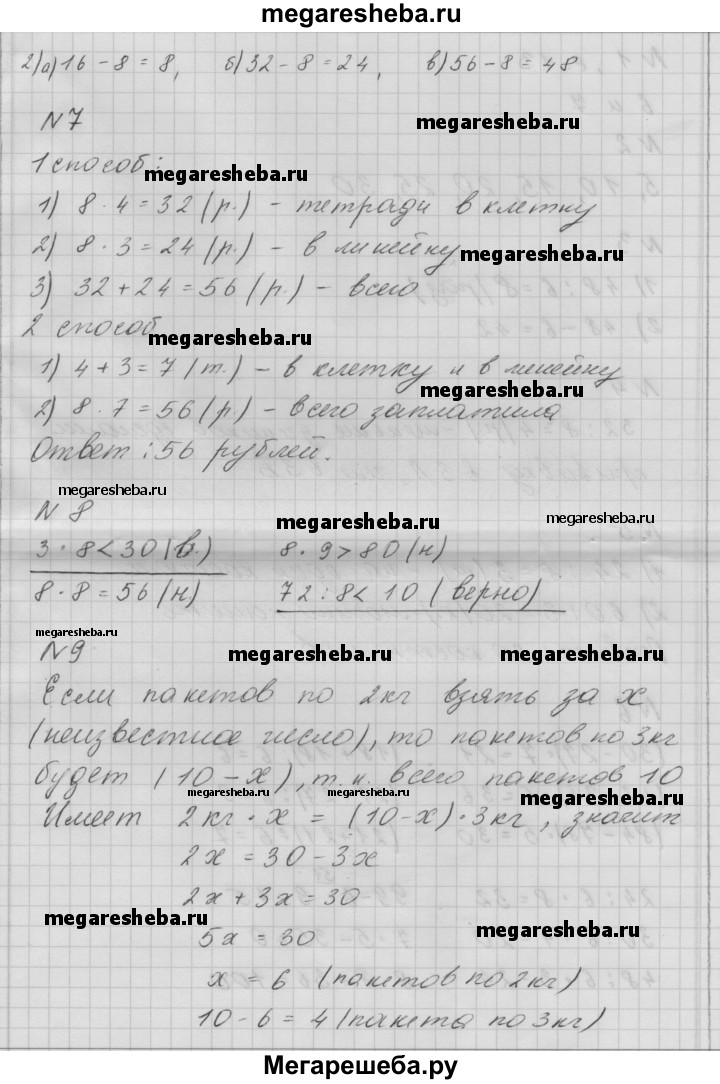 megaresheba.ru
2) а) 16 - 8 = 8, б) 32 - 8 = 24, в) 56 - 8 = 48
N 7
megaresheba.ru
1 способ:
megaresheba.ru
1) 8 · 4 = 32 (р.) - тетради в клетку
2) 8 · 3 = 24 (р.) - в линейку
megaresheba.ru
3) 32 + 24 = 56 (р.) - всего
2 способ
megaresheba.ru
1) 4 + 3 = 7 (т.) - в клетку и в линейку
megaresheba.ru
2) 8 · 7 = 56 (р.) - всего заплатила
Ответ: 56 рублей.
megaresheba.ru
N 8
megaresheba.ru megaresheba.ru
3 · 8 < 30 (в.) 8 · 9 > 80 (н)
8 · 8 = 56 (н) 72 : 8 < 10 (верно)
megaresheba.ru
N 9 megaresheba.ru megaresheba.ru
Если пакетов по 2кг взять за x
(неизвестное число), то пакетов по 3кг
будет (10 - x), т.к. всего пакетов 10
megaresheba.ru megaresheba.ru megaresheba.ru megaresheba.ru
Имеет 2кг · x = (10 - x) · 3кг, значит
2x = 30 - 3x
2x + 3x = 30
megaresheba.ru megaresheba.ru
5x = 30
x = 6 (пакетов по 2кг)
10 - 6 = 4 (пакета по 3кг)
Мегарешеба.ру